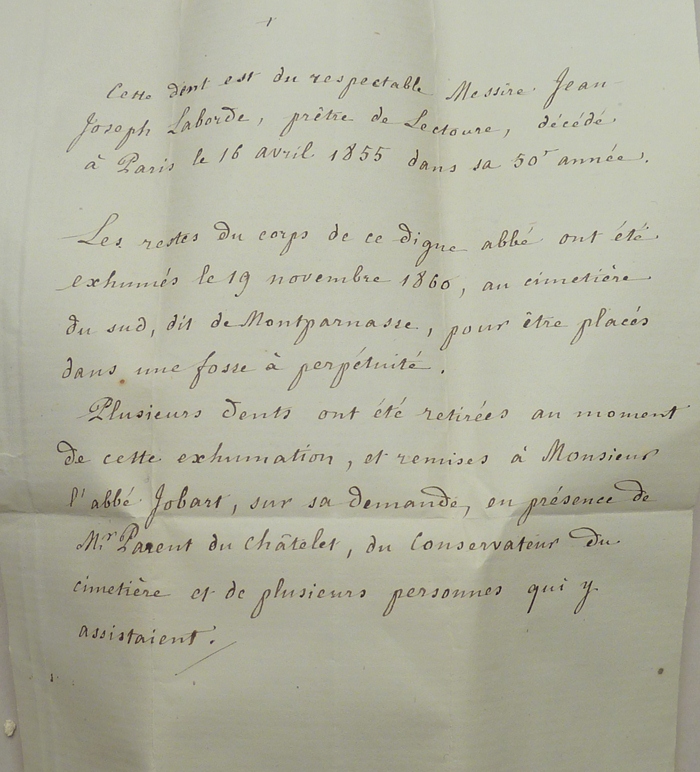 Cette dent est du respectable Messire Jean-
Joseph Laborde, prêtre de Lectoure, décédé
à Paris le 16 avril 1855 dans sa 50e année.
Les restes du corps de ce digne abbé ont été
exhumés le 19 novembre 1860, au cimetière
du sud, dit de Montparnasse, pour être placés
dans une fosse à perpétuité.
Plusieurs dents ont été retirées au moment
de cette exhumation, et remises à Monsieur
l'abbé Jobart, sur sa demande, en présence de
Mr Parent du Châtelet, du Conservateur du
cimetière et de plusieurs personnes qui y
assistaient.